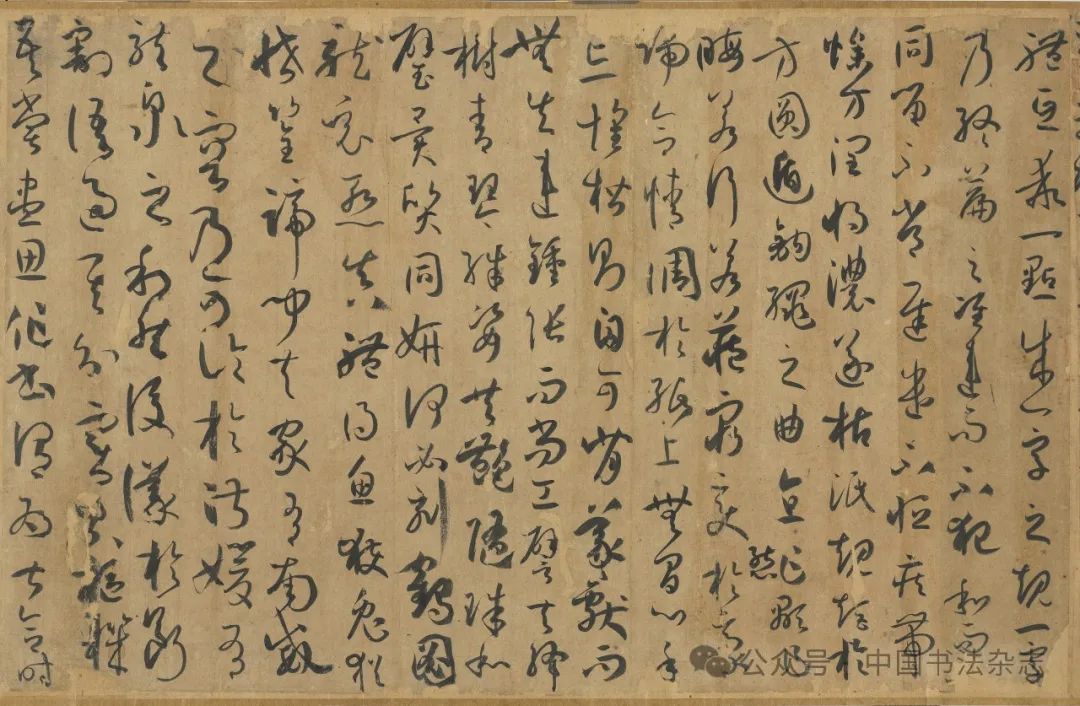 體互乖一點成一字之規一字
乃終篇之准違而不犯和而不
同留不常遲遣不恒疾帶
燥方潤將濃遂枯泯規矩於
方圓遁鉤繩之曲直乍顯乍
晦若行若藏窮變態於豪
端合情調於紙上無間心手
忘懷楷則自可背羲獻而
無失違鍾張而尚工譬夫絳
樹青琴殊姿共艷隨珠和
璧異質同妍何必刻鶴圖
龍竟慚真體得魚獲兔猶
恡筌蹄聞夫家有南威
之容乃可論於淑媛有
龍泉之利然後議於斷
割語過其分實累樞機
吾嘗盡思作書謂為甚合時
公众号·中国书法杂志